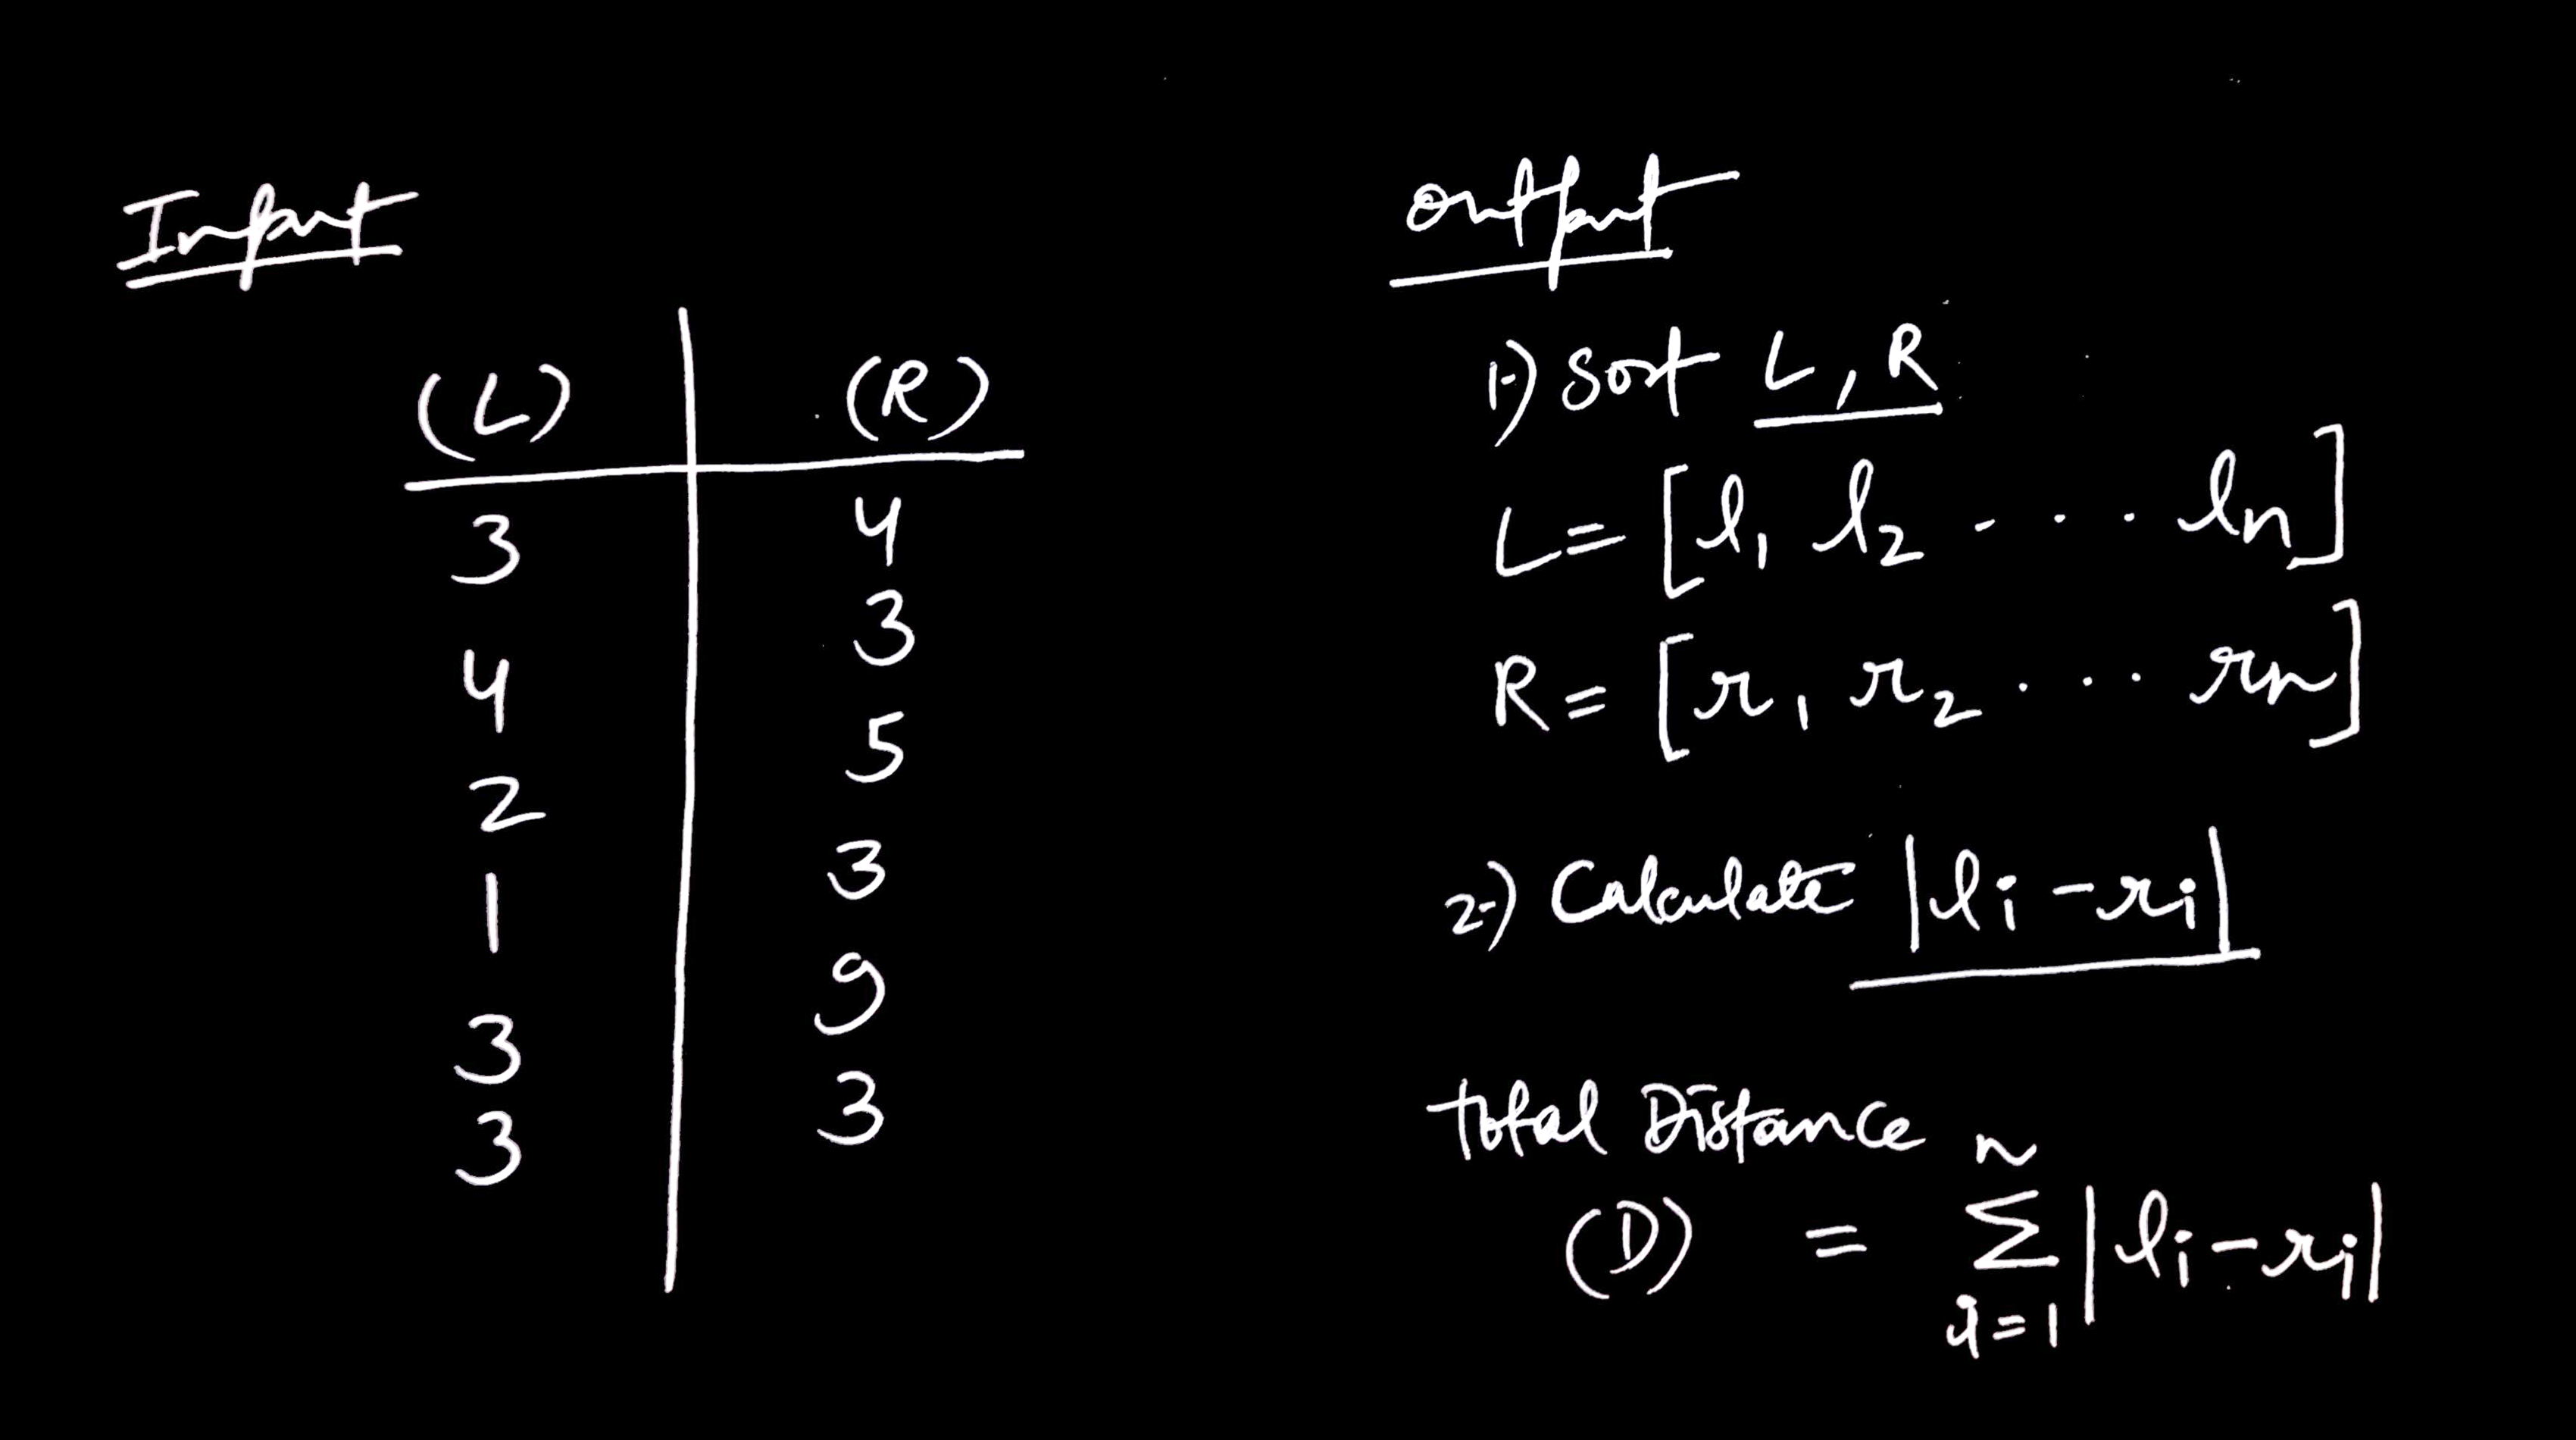 Input
(L) (R)
3 4
4 3
2 5
1 3
3 9
3 3
output
1.) Sort L, R
L = [l1 l2 . . . . ln]
R = [r1 r2 . . . . rn]
2.) Calculate |li - ri|
Total Distance
(D) = n∑i=1 |li - ri|